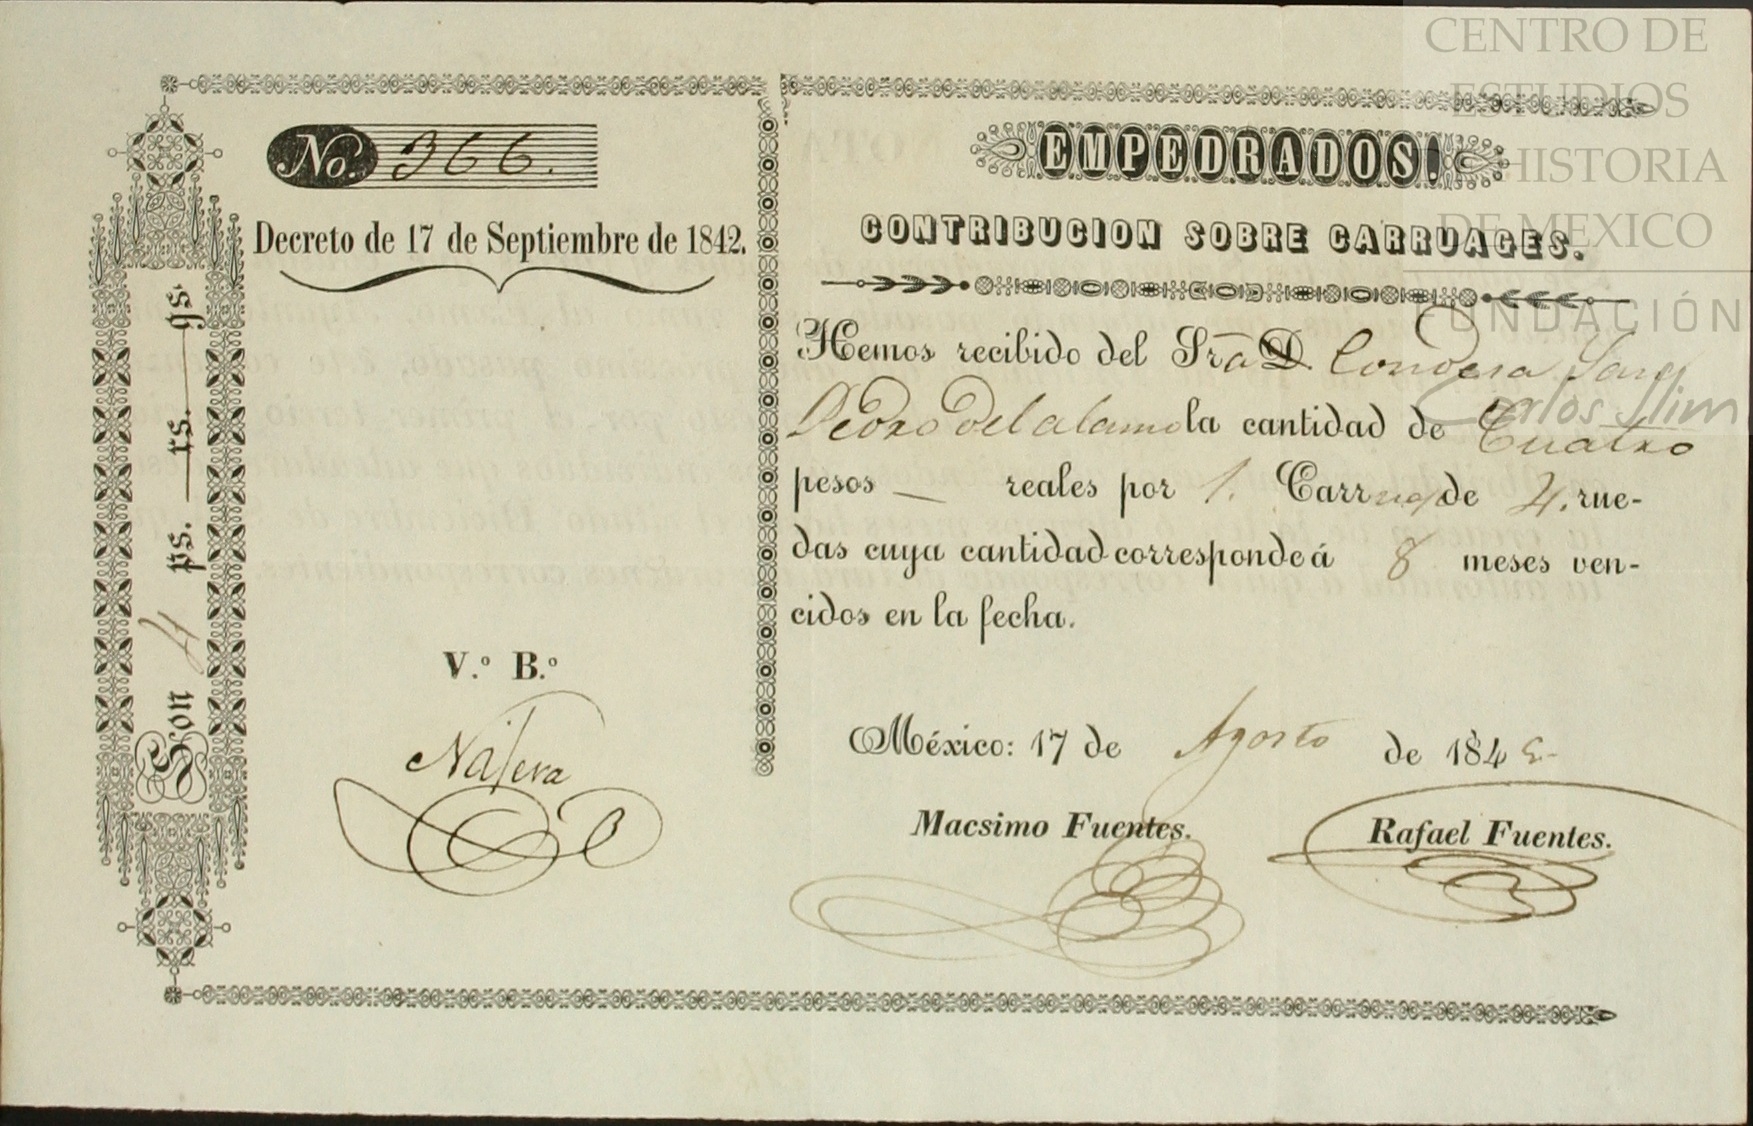 No. 366.
Decreto de 17 de Septiembre de 1842.
Son 4 ps. — rs. — gs.
V.º B.º
Najera
EMPEDRADOS!
CONTRIBUCION SOBRE CARRUAGES.
Hemos recibido del Sra D. Condesa San
Pedro del alamo la cantidad de Cuatro
pesos — reales por 1. Carruag de 4. rue-
das cuya cantidad corresponde á 8 meses ven-
cidos en la fecha.
México: 17 de Agosto de 184
Macsimo Fuentes.
Rafael Fuentes.
CENTRO DE
ESTUDIOS
HISTORIA
DE MEXICO
FUNDACIÓN
Carlos Slim